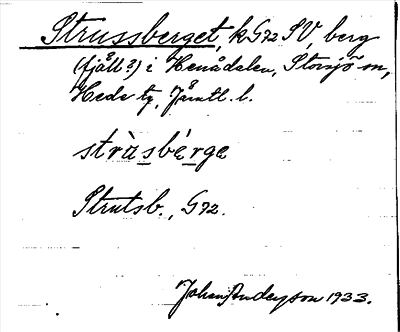 Strussberget, k G92 SV, berg
(fjäll?) i Henådalen, Storsjö sn,
Hede tg, Jämtl. l.
stràsbérge
Strutsb., G92.
Johan Anderson 1933.